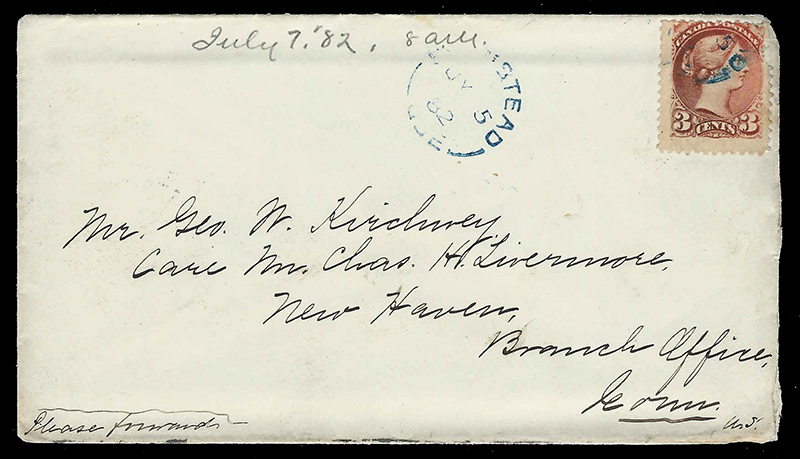 July 7. '82, 8 a.m.
STEAD
JY 5
82
CANADA POSTAGE
3 CENTS 3
Mr. Geo. W. Kirchwey,
Care Mr. Chas. H. Livermore,
New Haven,
Branch Office,
Conn.
U.S.
Please forward